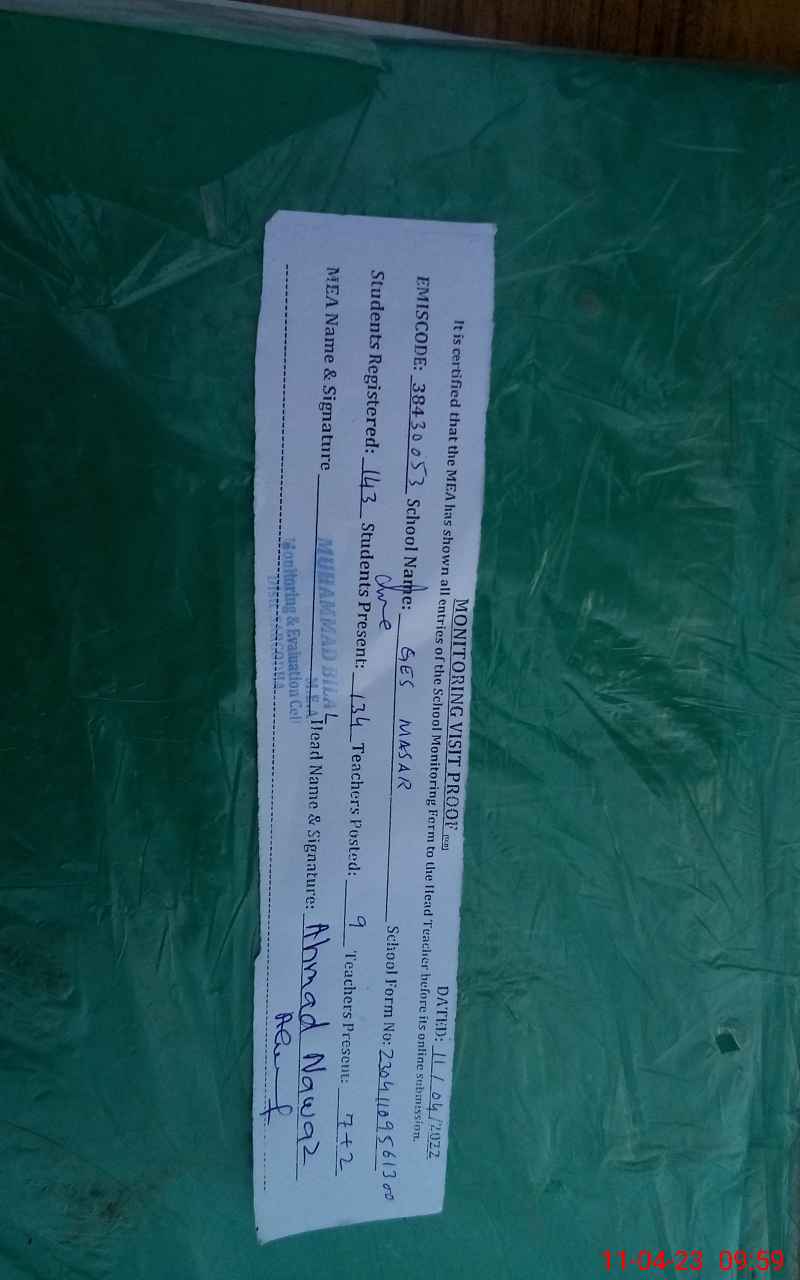 MONITORING VISIT PROOF
DATED: 11/04/2022
It is certified that the MEA has shown all entries of the School Monitoring Form to the Head Teacher before its online submission.
EMISCODE: 38430053 School Name: GES MASAR School Form No: 23041109561300
Students Registered: 143 Students Present: 134 Teachers Posted: 9 Teachers Present: 7+2
MEA Name & Signature Head Name & Signature: Ahmad Nawaz
MUHAMMAD BILAL
M.E.A
Monitoring & Evaluation Cell
Distt: SARGODHA
11-04-23 09:59